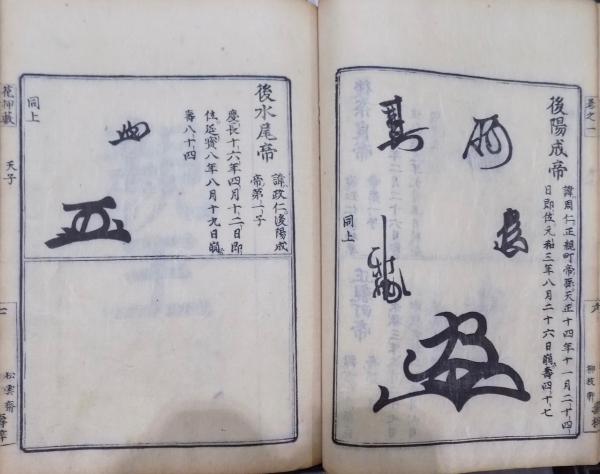 後陽成帝
諱周仁正親町帝孫天正十四年十一月二十四
日即位元和三年八月二十六日崩壽四十七
同上
後水尾帝
諱政仁後陽成
帝第一子
慶長十六年四月十二日即
位延寶八年八月十九日崩
壽八十四
同上
卷之一
花押藪
天子
七
松雲齋